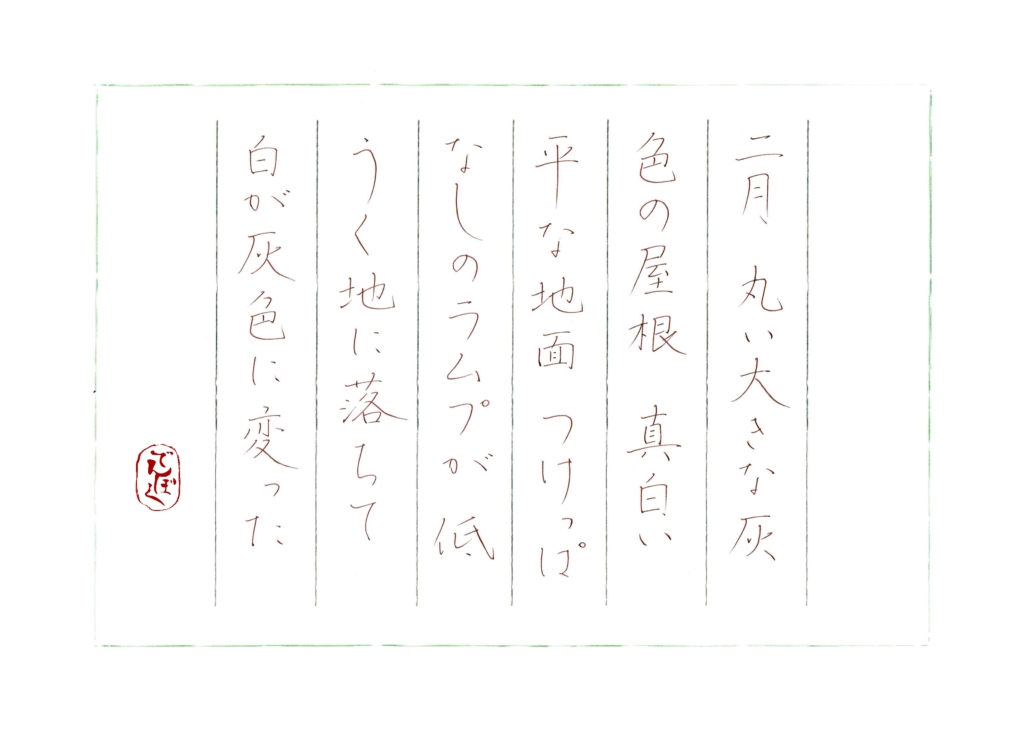 二月、丸い大きな灰
色の屋根 真白い
平な地面 つけっぱ
なしのラムプが 低
うく地に落ちて
白が灰色に変った
でんぼく